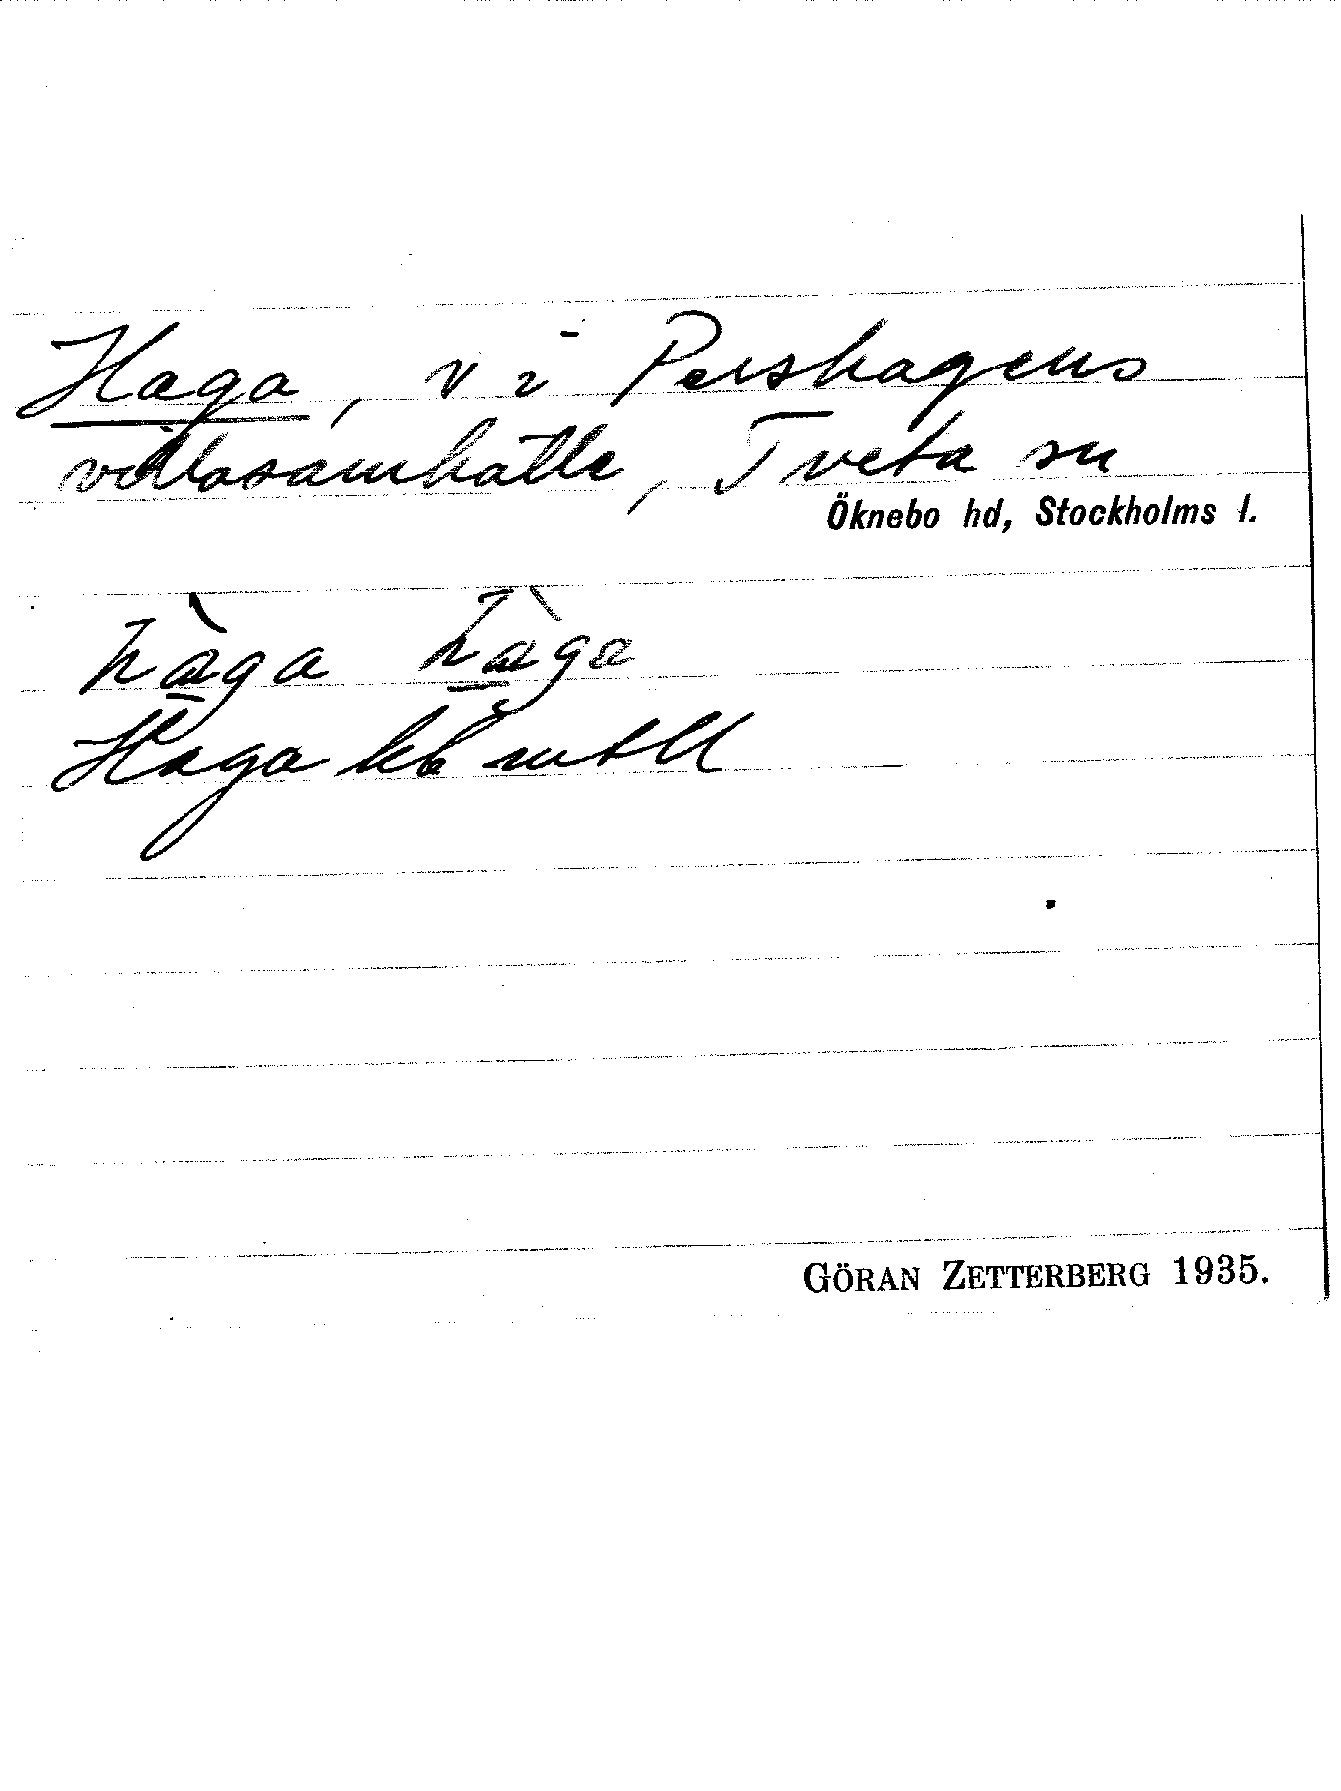 Haga, v i Pershagens
villasamhälle, Tveta sn
Öknebo hd, Stockholms l.
hàga hàga
Haga
GÖRAN ZETTERBERG 1935.